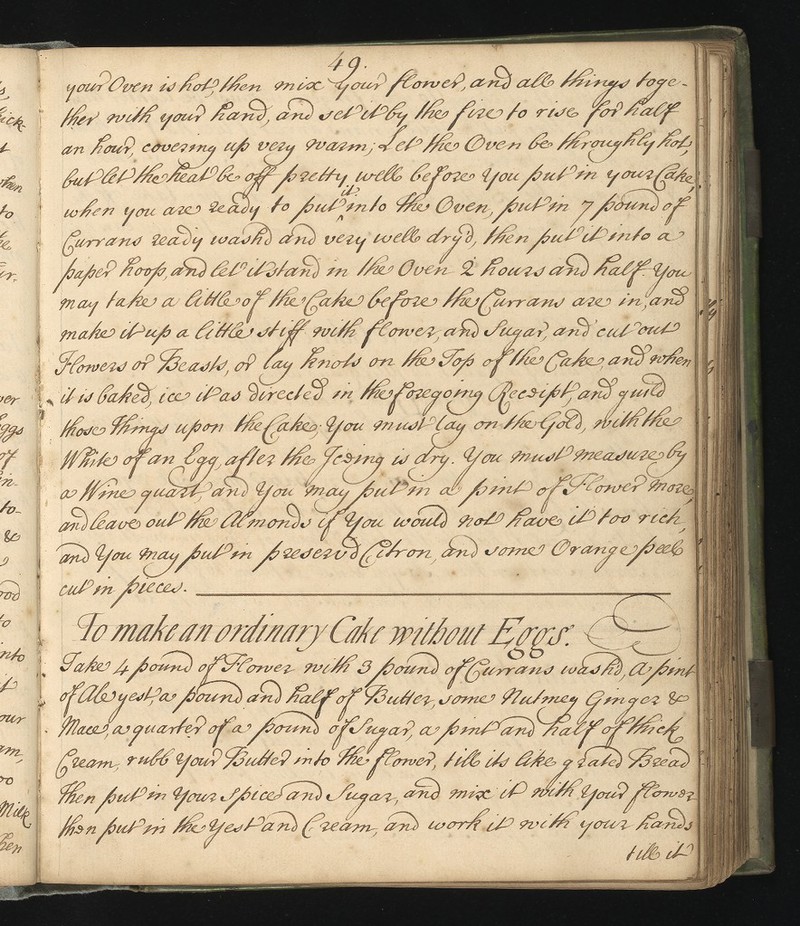 49.
your Oven is hot, then mix your flower, and all things toge-
ther with your hand, and set it by the fire to rise for half
an hour, covering up very warm; Let the Oven be throughly hot,
but let the heat be off pretty well before you put in your Cake,
when you are ready to put it into the Oven, put in 7 pound of
Currans ready washd and very well dry'd, then put it into a
paper hoop, and let it stand in the Oven 2 hours and half. You
may take a little of the Cake before the Currans are in, and
make it up a little stiff with flower, and Sugar, and cut out
Flowers or Beasts, or lay knots on the Top of the Cake, and when
it is baked, ice it as directed in the foregoing Receipt, and guild
those things upon the Cake; You must lay on the Gold, with the
White of an Egg, after the Iceing is dry. You must measure by
a Wine quart, and You may put in a pint of Flower more,
and leave out the Almonds if You would not have it too rich,
and You may put in preserv'd Citron, and some Orange peel
cut in pieces.
To make an ordinary Cake without Eggs.
Take 4 pound of Flower with 3 pound of Currans washd, a pint
of Ale yest, a pound and half of Butter, some Nutmeg Ginger &
Mace, a quarter of a pound of Sugar, a pint and half of thick
Cream, rubb your Butter into the flower, till its like grated Bread
then put in Your Spice and Sugar, and mix it with Your flower
then put in the Yest and Cream, and work it with your hands
till it